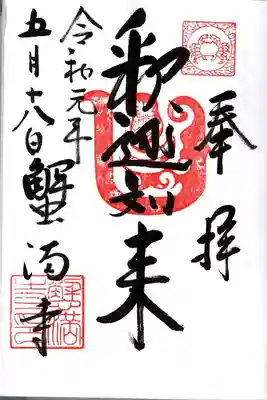 奉拝
釈迦如来
令和元年
五月十八日
蟹満寺
蟹満寺印